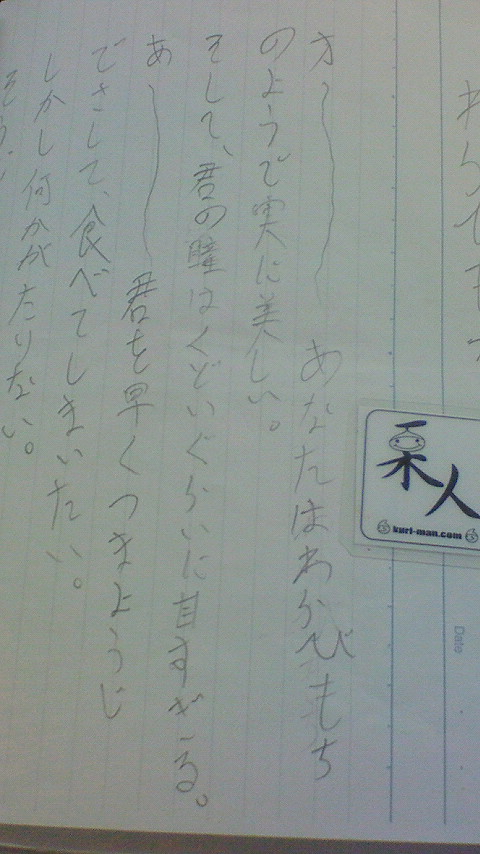 わらびもち
オ〜〜〜あなたはわらびもち
のようで実に美しい。
そして、君の瞳はくどいぐらいに甘すぎる。
あ〜〜〜君を早くつまようじ
でさして、食べてしまいたい。
しかし何かがたりない。
そう、
栗人
kuri-man.com
Date